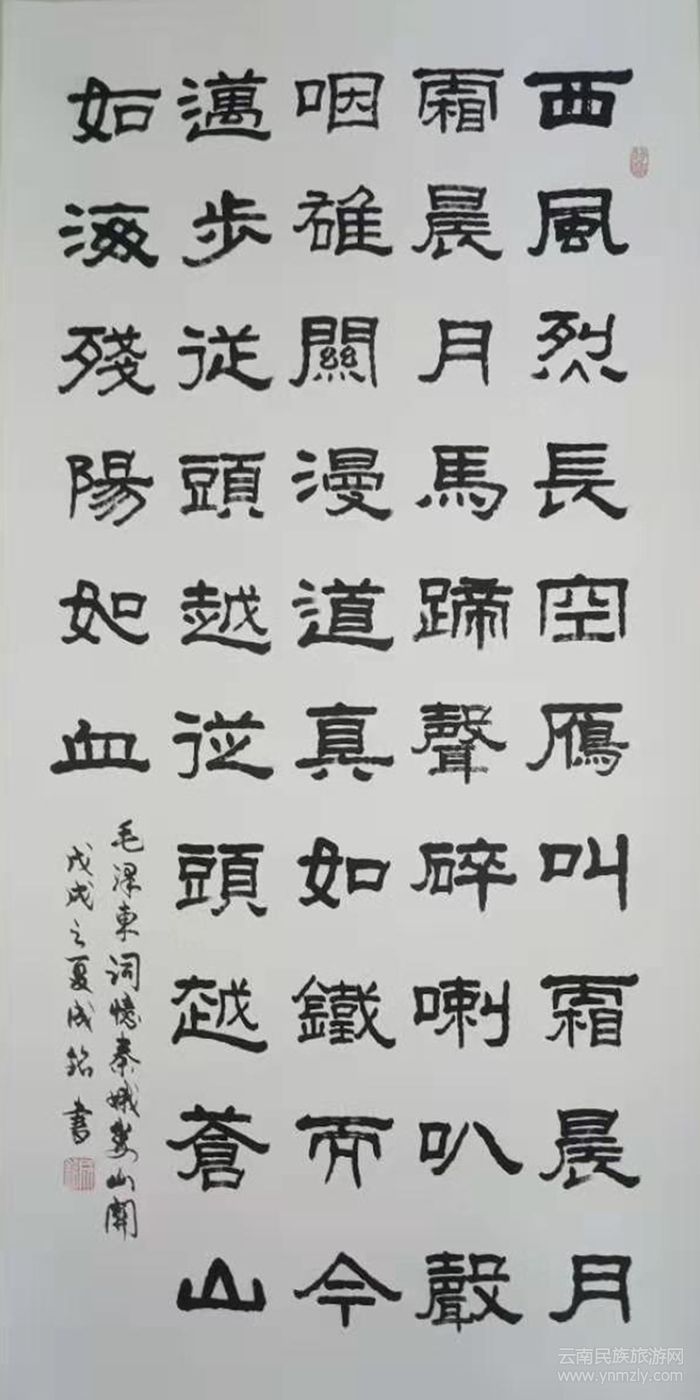 西風烈長空雁叫霜晨月
霜晨月馬蹄聲碎喇叭聲
咽雄關漫道真如鐵而今
邁步從頭越從頭越蒼山
如海殘陽如血
毛澤東词憶秦娥婁山關
戊戌之夏成銘書
云南民族旅游网
www.ynmzly.com